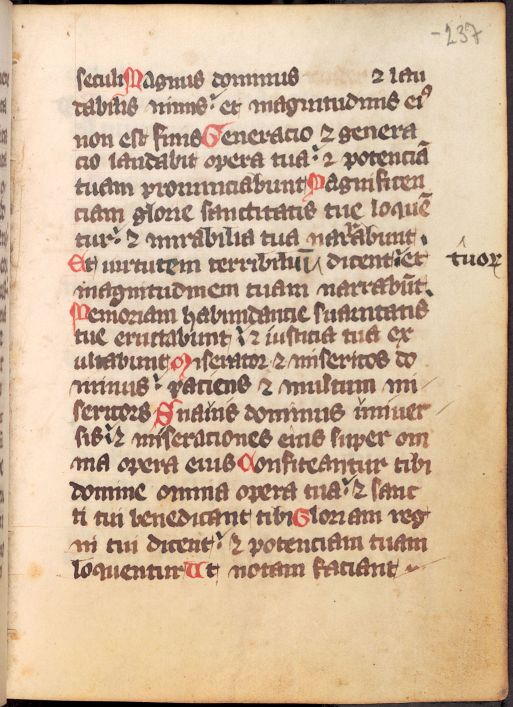 -237
seculi Magnus dominus ⁊ lau
dabilis nimis et magnitudinis eiꝰ
non est finis Generacio ⁊ genera
cio laudabit opera tua ⁊ potenciā
tuam pronunciabunt Magnificen
ciam glorie sanctitatis tue loquē
tur ⁊ mirabilia tua narrabunt
Et uirtutem terribiliū dicent et tuoꝝ
magnitudinem tuam narrabūt
Memoriam habundancie suauitatis
tue eructabunt ⁊ iusticia tua ex
ultabunt Miserator ⁊ misericos do
minus paciens ⁊ multum mi
sericors Suauis dominus uniuer
sis ⁊ miseraciones eius super om
nia opera eius Confiteantur tibi
domine omnia opera tua ⁊ sanc
ti tui benedicant tibi Gloriam reg
ni tui dicent ⁊ potenciam tuam
loquentur Ut notam faciant